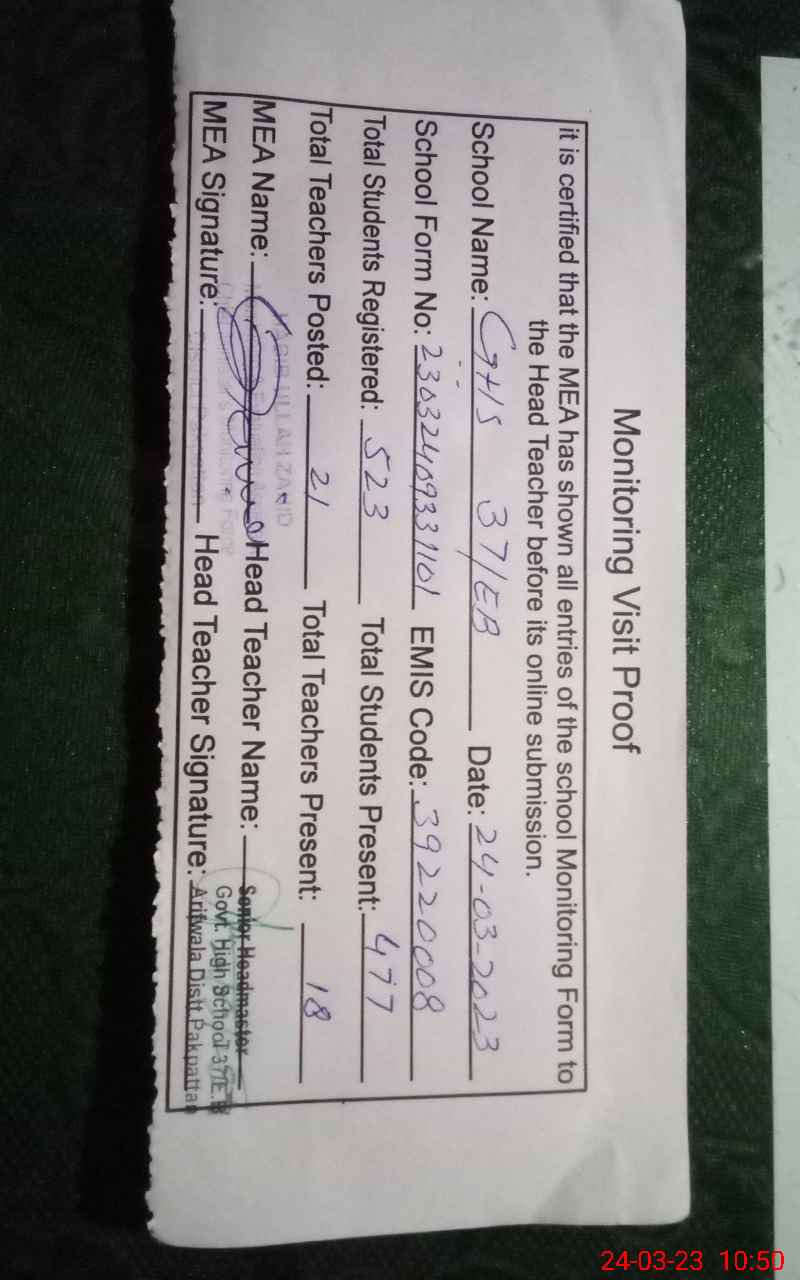 Monitoring Visit Proof
it is certified that the MEA has shown all entries of the school Monitoring Form to
the Head Teacher before its online submission.
School Name: GHS 37/EB Date: 24-03-2023
School Form No: 23032409331101 EMIS Code: 39220008
Total Students Registered: 523 Total Students Present: 477
Total Teachers Posted: 21 Total Teachers Present: 18
MEA Name: Head Teacher Name:
MEA Signature: Head Teacher Signature:
Senior Headmaster
Govt. High School 37/E.B
Arifwala Distt. Pakpattan
24-03-23 10:50